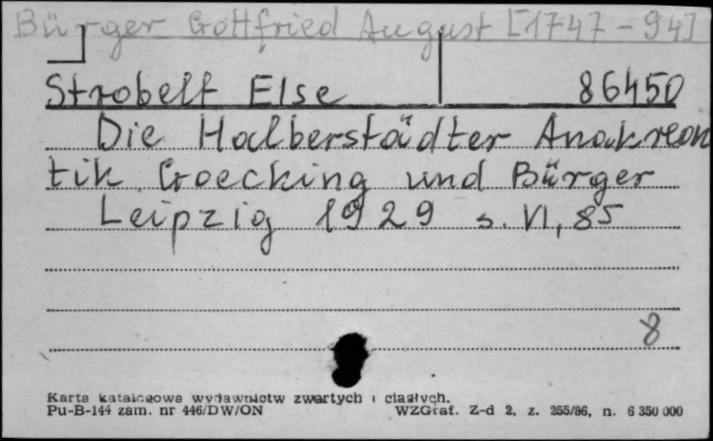 Bürger Gottfried August [1747-94]
Strobelt Else 86450
Die Halberstädter Anakreon
tik Goecking und Bürger
Leipzig 1929 s. VI, 85
8
Karta katalogowa wydawnictw zwartych i ciągłych.
Pu-B-144 zam. nr 446/DW/ON WZGraf. Z-d 2, z. 255/86, n. 6 350 000